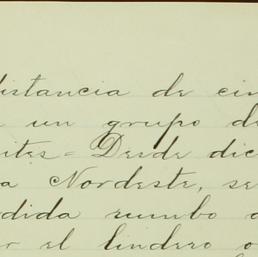 distancia de cin
un grupo de
ites = Desde dic
a Nordeste, se
dida rumbo a
or el lindero o